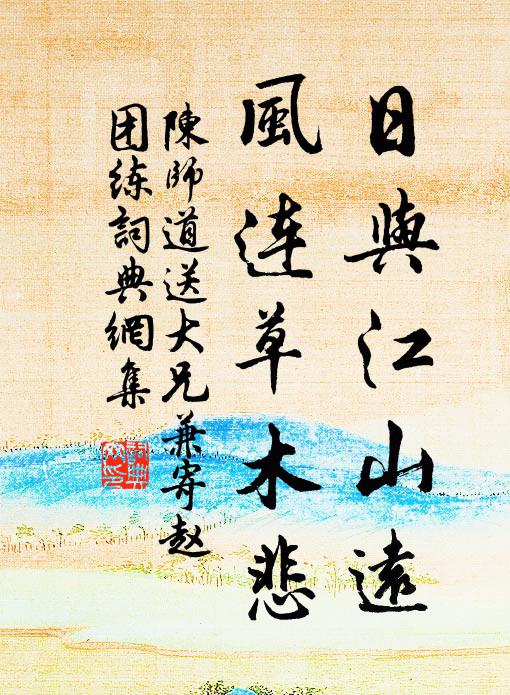 日與江山遠
風連草木悲
陳師道送大兄兼寄赵
团练詞典網集